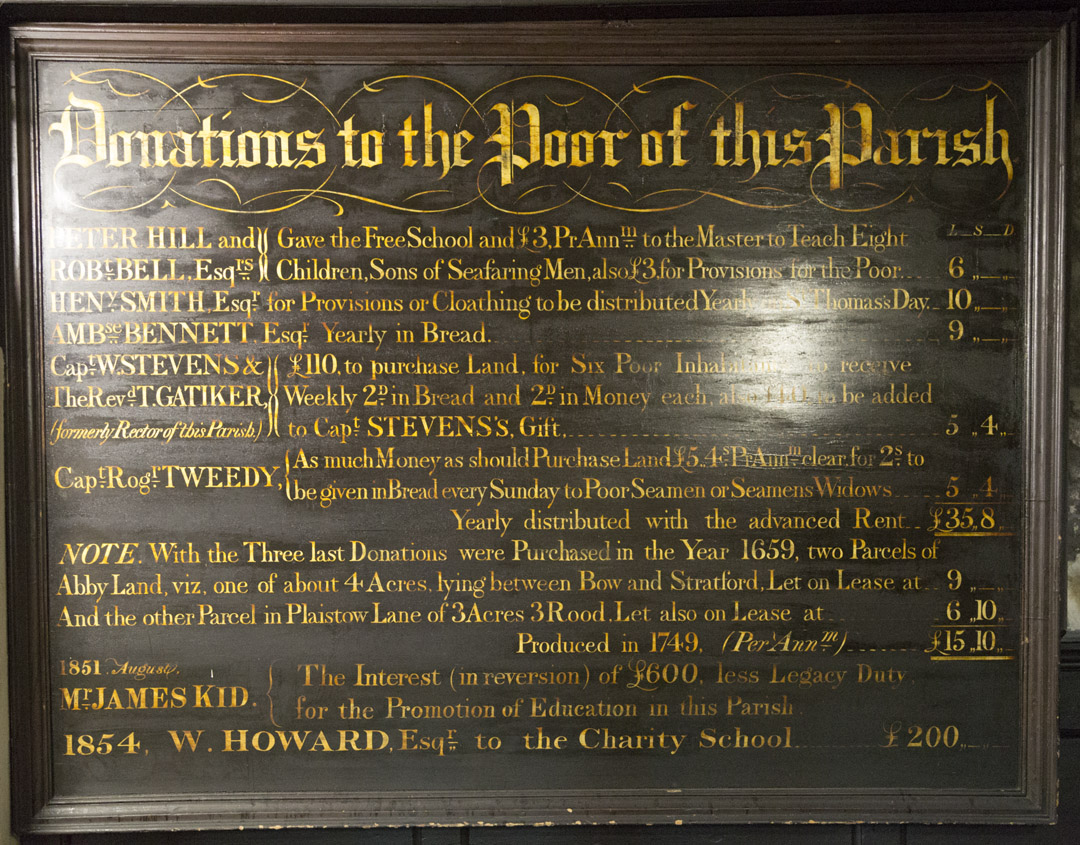 Donations to the Poor of this Parish
L—S—D
PETER HILL and } Gave the Free School and £3, Pr Annm to the Master to Teach Eight
ROBt. BELL, Esqrs } Children, Sons of Seafaring Men, also £3, for Provisions for the Poor 6 „—„—
HENy. SMITH, Esqr. for Provisions or Cloathing to be distributed Yearly on St Thomas's Day. 10 „—„—
AMBse BENNETT. Esqr. Yearly in Bread. 9 „—„—
Capt. W. STEVENS & } £110, to purchase Land, for Six Poor Inhabitants to receive
The Revd. T. GATIKER, } Weekly 2D. in Bread and 2D. in Money each, also to be added
(formerly Rector of this Parish.) } to Capt. STEVENS'S, Gift, 5 „4„—
Capt. Rogr. TWEEDY, { As much Money as should Purchase Land £5„4s. Pr Annm clear, for 2s. to
be given in Bread every Sunday to Poor Seamen or Seamens Widows 5 „4„—
Yearly distributed with the advanced Rent £35„8„
NOTE. With the Three last Donations were Purchased in the Year 1659, two Parcels of
Abby Land, viz, one of about 4 Acres, lying between Bow and Stratford, Let on Lease at 9 „—„—
And the other Parcel in Plaistow Lane of 3 Acres 3 Rood. Let also on Lease at 6 „10„
Produced in 1749, (Per Annm) £15„10„
1851. August,
Mr. JAMES KID. { The Interest (in reversion) of £600, less Legacy Duty,
for the Promotion of Education in this Parish.
1854, W. HOWARD, Esqr. to the Charity School £200„—„—